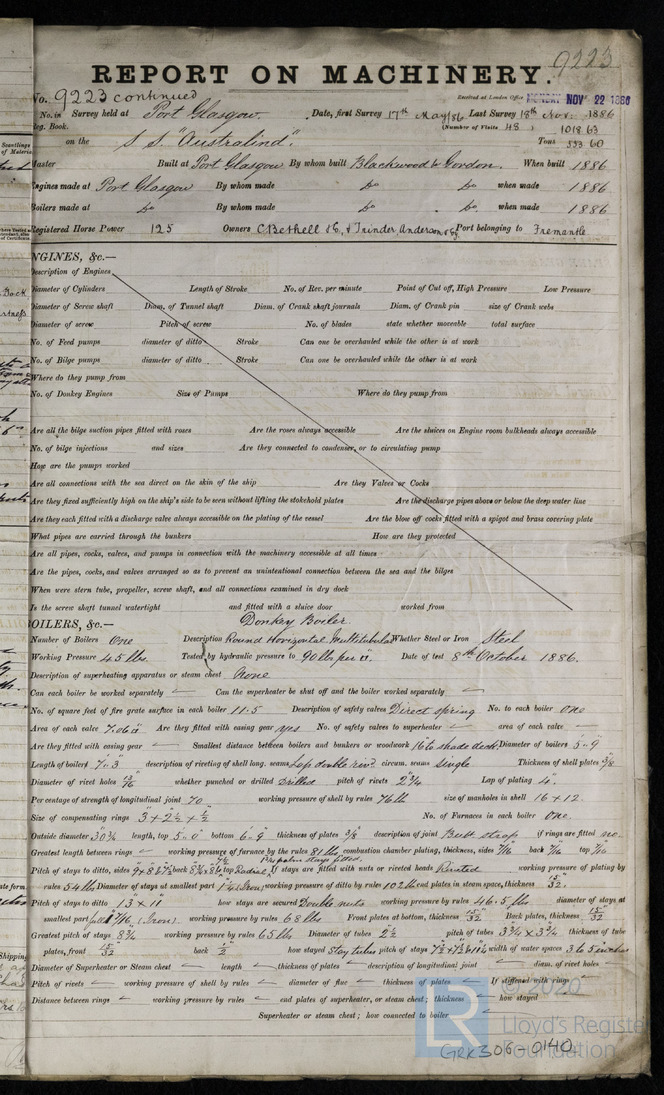 9223
REPORT ON MACHINERY.
No. 9223 continued Received at London Office MONDAY NOV 22 1886
No. in Survey held at Port Glasgow Date, first Survey 17th May/86 Last Survey 18th Nov. 1886
Reg. Book. (Number of Visits 48) 1018.63
on the S.S. "Australind". Tons 553.60
Master Built at Port Glasgow By whom built Blackwood & Gordon. When built 1886
Engines made at Port Glasgow By whom made Do Do when made 1886
Boilers made at Do By whom made Do Do when made 1886
Registered Horse Power 125 Owners C Bethell & Co, & Trinder, Anderson & Co Port belonging to Fremantle
ENGINES, &c.—
Description of Engines
Diameter of Cylinders Length of Stroke No. of Rev. per minute Point of Cut off, High Pressure Low Pressure
Diameter of Screw shaft Diam. of Tunnel shaft Diam. of Crank shaft journals Diam. of Crank pin size of Crank webs
Diameter of screw Pitch of screw No. of blades state whether moveable total surface
No. of Feed pumps diameter of ditto Stroke Can one be overhauled while the other is at work
No. of Bilge pumps diameter of ditto Stroke Can one be overhauled while the other is at work
Where do they pump from
No. of Donkey Engines Size of Pumps Where do they pump from
Are all the bilge suction pipes fitted with roses Are the roses always accessible Are the sluices on Engine room bulkheads always accessible
No. of bilge injections and sizes Are they connected to condenser, or to circulating pump
How are the pumps worked
Are all connections with the sea direct on the skin of the ship Are they Valves or Cocks
Are they fixed sufficiently high on the ship's side to be seen without lifting the stokehold plates Are the discharge pipes above or below the deep water line
Are they each fitted with a discharge valve always accessible on the plating of the vessel Are the blow off cocks fitted with a spigot and brass covering plate
What pipes are carried through the bunkers How are they protected
Are all pipes, cocks, valves, and pumps in connection with the machinery accessible at all times
Are the pipes, cocks, and valves arranged so as to prevent an unintentional connection between the sea and the bilges
When were stern tube, propeller, screw shaft, and all connections examined in dry dock
Is the screw shaft tunnel watertight and fitted with a sluice door worked from
BOILERS, &c.— Donkey Boiler.
Number of Boilers One Description Round Horizontal Multitubular Whether Steel or Iron Steel
Working Pressure 45 lbs. Tested by hydraulic pressure to 90 lbs per □". Date of test 8th October 1886.
Description of superheating apparatus or steam chest None
Can each boiler be worked separately Can the superheater be shut off and the boiler worked separately
No. of square feet of fire grate surface in each boiler 11.5 Description of safety valves Direct spring No. to each boiler One
Area of each valve 7.06 □" Are they fitted with easing gear yes No. of safety valves to superheater area of each valve
Are they fitted with easing gear Smallest distance between boilers and bunkers or woodwork 16 to shade deck. Diameter of boilers 5-9
Length of boilers 7-3 description of riveting of shell long. seams Lap double rivd. circum. seams Single Thickness of shell plates 3/8
Diameter of rivet holes 13/16 whether punched or drilled Drilled pitch of rivets 2 3/4 Lap of plating 4.
Per centage of strength of longitudinal joint 70 working pressure of shell by rules 76 lb size of manholes in shell 16 × 12
Size of compensating rings 3 × 2 1/2 × 1/2 No. of Furnaces in each boiler One.
Outside diameter 30 3/4 length, top 5-0 bottom 6-9 thickness of plates 3/8 description of joint Butt strap if rings are fitted no
Greatest length between rings working pressure of furnace by the rules 81 lbs combustion chamber plating, thickness, sides 7/16 back 7/16 top 7/16
Pitch of stays to ditto, sides back top Radial If stays are fitted with nuts or riveted heads Riveted working pressure of plating by
rules 54 lbs Diameter of stays at smallest part working pressure of ditto by rules 102 lb end plates in steam space, thickness 15/32.
Pitch of stays to ditto 13 × 11 how stays are secured Double nuts working pressure by rules 46.5 lbs diameter of stays at
smallest part (Iron) working pressure by rules 68 lbs Front plates at bottom, thickness 15/32 Back plates, thickness 15/32
Greatest pitch of stays 8 3/4 working pressure by rules 65 lbs Diameter of tubes 2 1/2 pitch of tubes 3 3/4 × 3 3/4 thickness of tube
plates, front 15/32 back 1/2 how stayed Stay tubes pitch of stays width of water spaces 3 to 5 inches
Diameter of Superheater or Steam chest length thickness of plates description of longitudinal joint diam. of rivet holes
Pitch of rivets working pressure of shell by rules diameter of flue thickness of plates If stiffened with rings
Distance between rings working pressure by rules end plates of superheater, or steam chest; thickness how stayed
Superheater or steam chest; how connected to boiler
© 2020
LR Lloyd's Register
Foundation
GRK306-0140